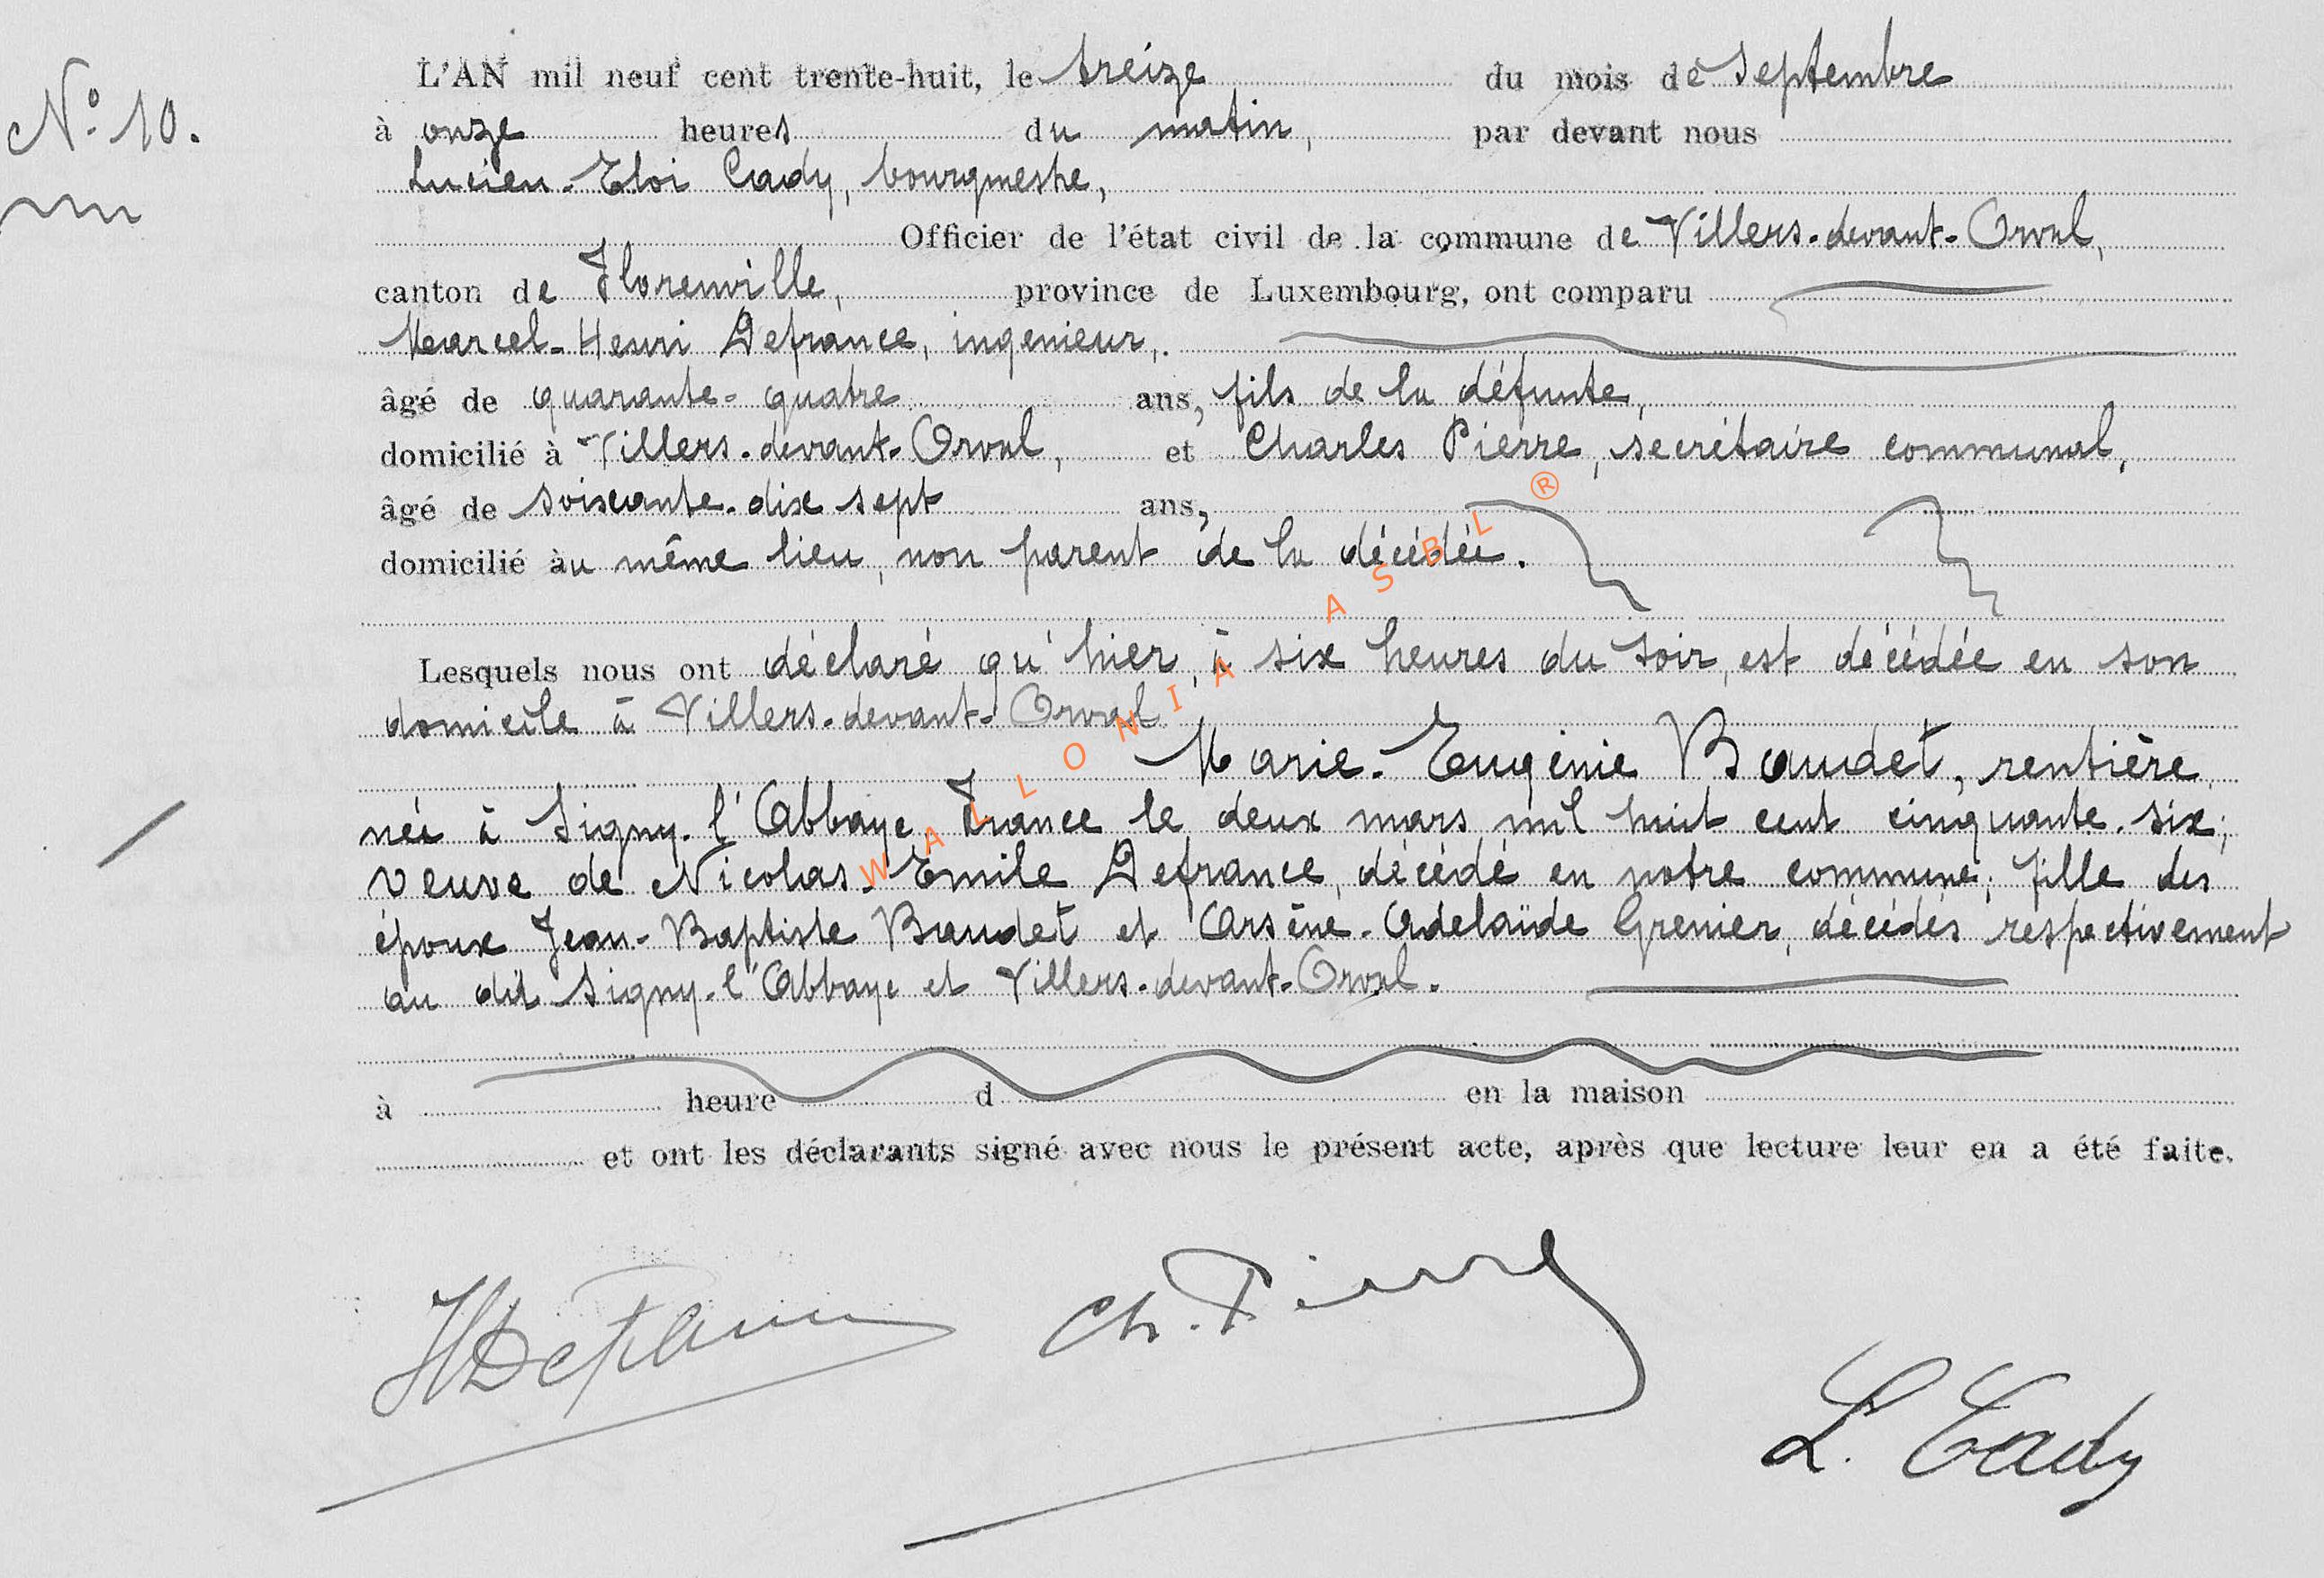 N° 10.
L'AN mil neuf cent trente-huit, le treize du mois de Septembre
à onze heures du matin, par devant nous
Lucien-Eloi Cady, bourgmestre,
Officier de l'état civil de la commune de Villers-devant-Orval,
canton de Florenville, province de Luxembourg, ont comparu
Marcel-Henri Defrance, ingenieur,
âgé de quarante-quatre ans, fils de la défunte,
domicilié à Villers-devant-Orval, et Charles Pierre, secrétaire communal,
âgé de soixante-dix sept ans,
domicilié àu même lieu, non parent de la décédée.
Lesquels nous ont déclaré qu'hier, à six heures du soir, est décédée en son
domicile à Villers-devant-Orval
Marie-Eugénie Baudet, rentière,
née à Signy-l'Abbaye, France le deux mars mil huit cent cinquante-six;
veuve de Nicolas-Emile Defrance, décédé en notre commune; fille des
époux Jean-Baptiste Baudet et Arsène-Adelaïde Grenier, décédés respectivement
au dit Signy-l'Abbaye et Villers-devant-Orval.
à heure d en la maison
et ont les déclarants signé avec nous le présent acte, après que lecture leur en a été faite.
HDefrance Ch. Pierre
L. Cady
WALLONIA ASBL ®